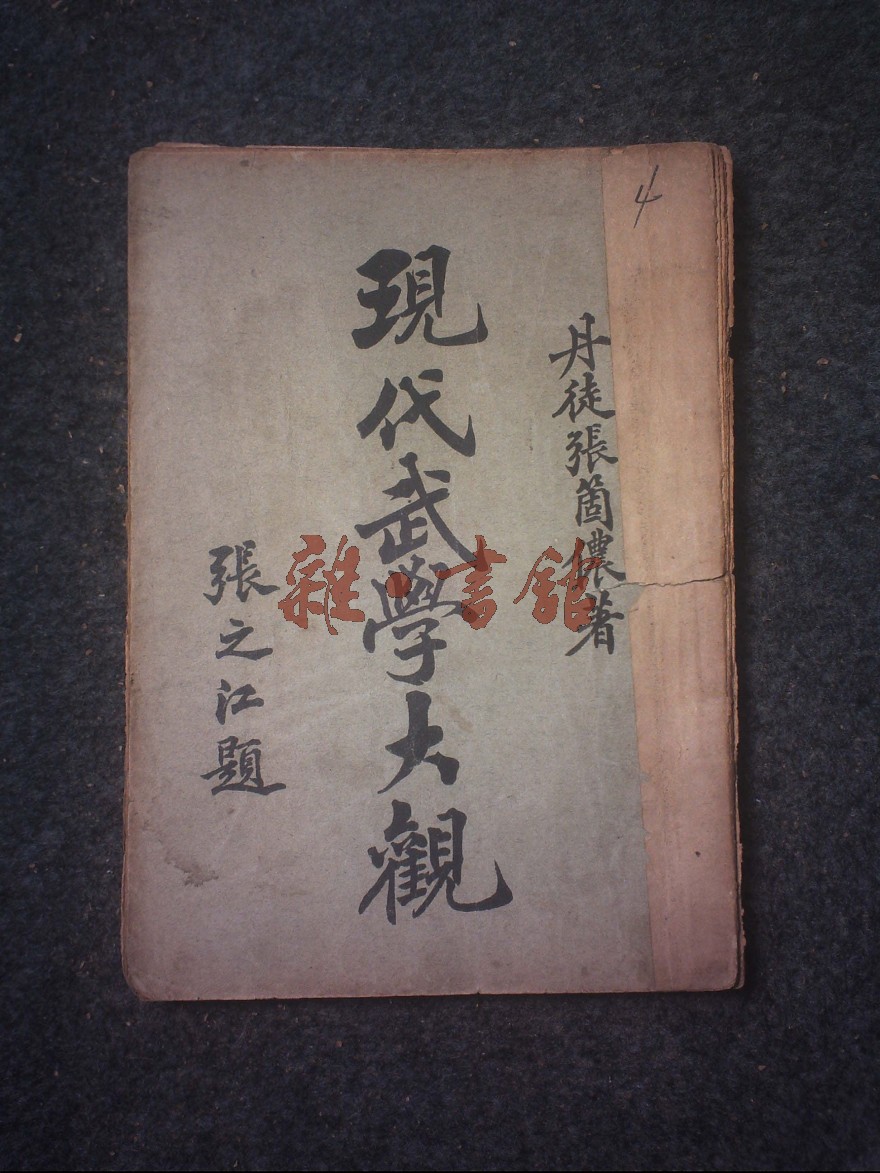 4
丹徒張箇儂著
現代武學大觀
張之江題
雜·書館